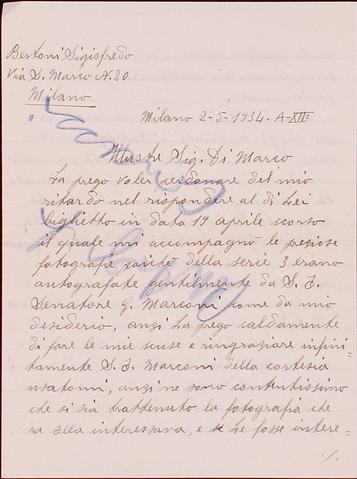 Bertoni Sigisfredo
Via S. Marco N. 20
Milano
Milano 2-5-1934. A-XIIº
Illustre Sig. Di Marco
La prego voler perdonare del mio
ritardo nel rispondere al di Lei
biglietto in data 19 aprile scorso
il quale mi accompagnò le preziose
fotografie parte della serie 3 erano
autografate gentilmente da S. E.
Senatore G. Marconi come da mio
desiderio, anzi La prego caldamente
di fare le mie scuse e ringraziare infini-
tamente S. E. Marconi della cortesia
usatomi, anzi ne sono contentissimo
che si sia trattenuto la fotografia che
ra ella interessava, e se Le fosse intere-
./.